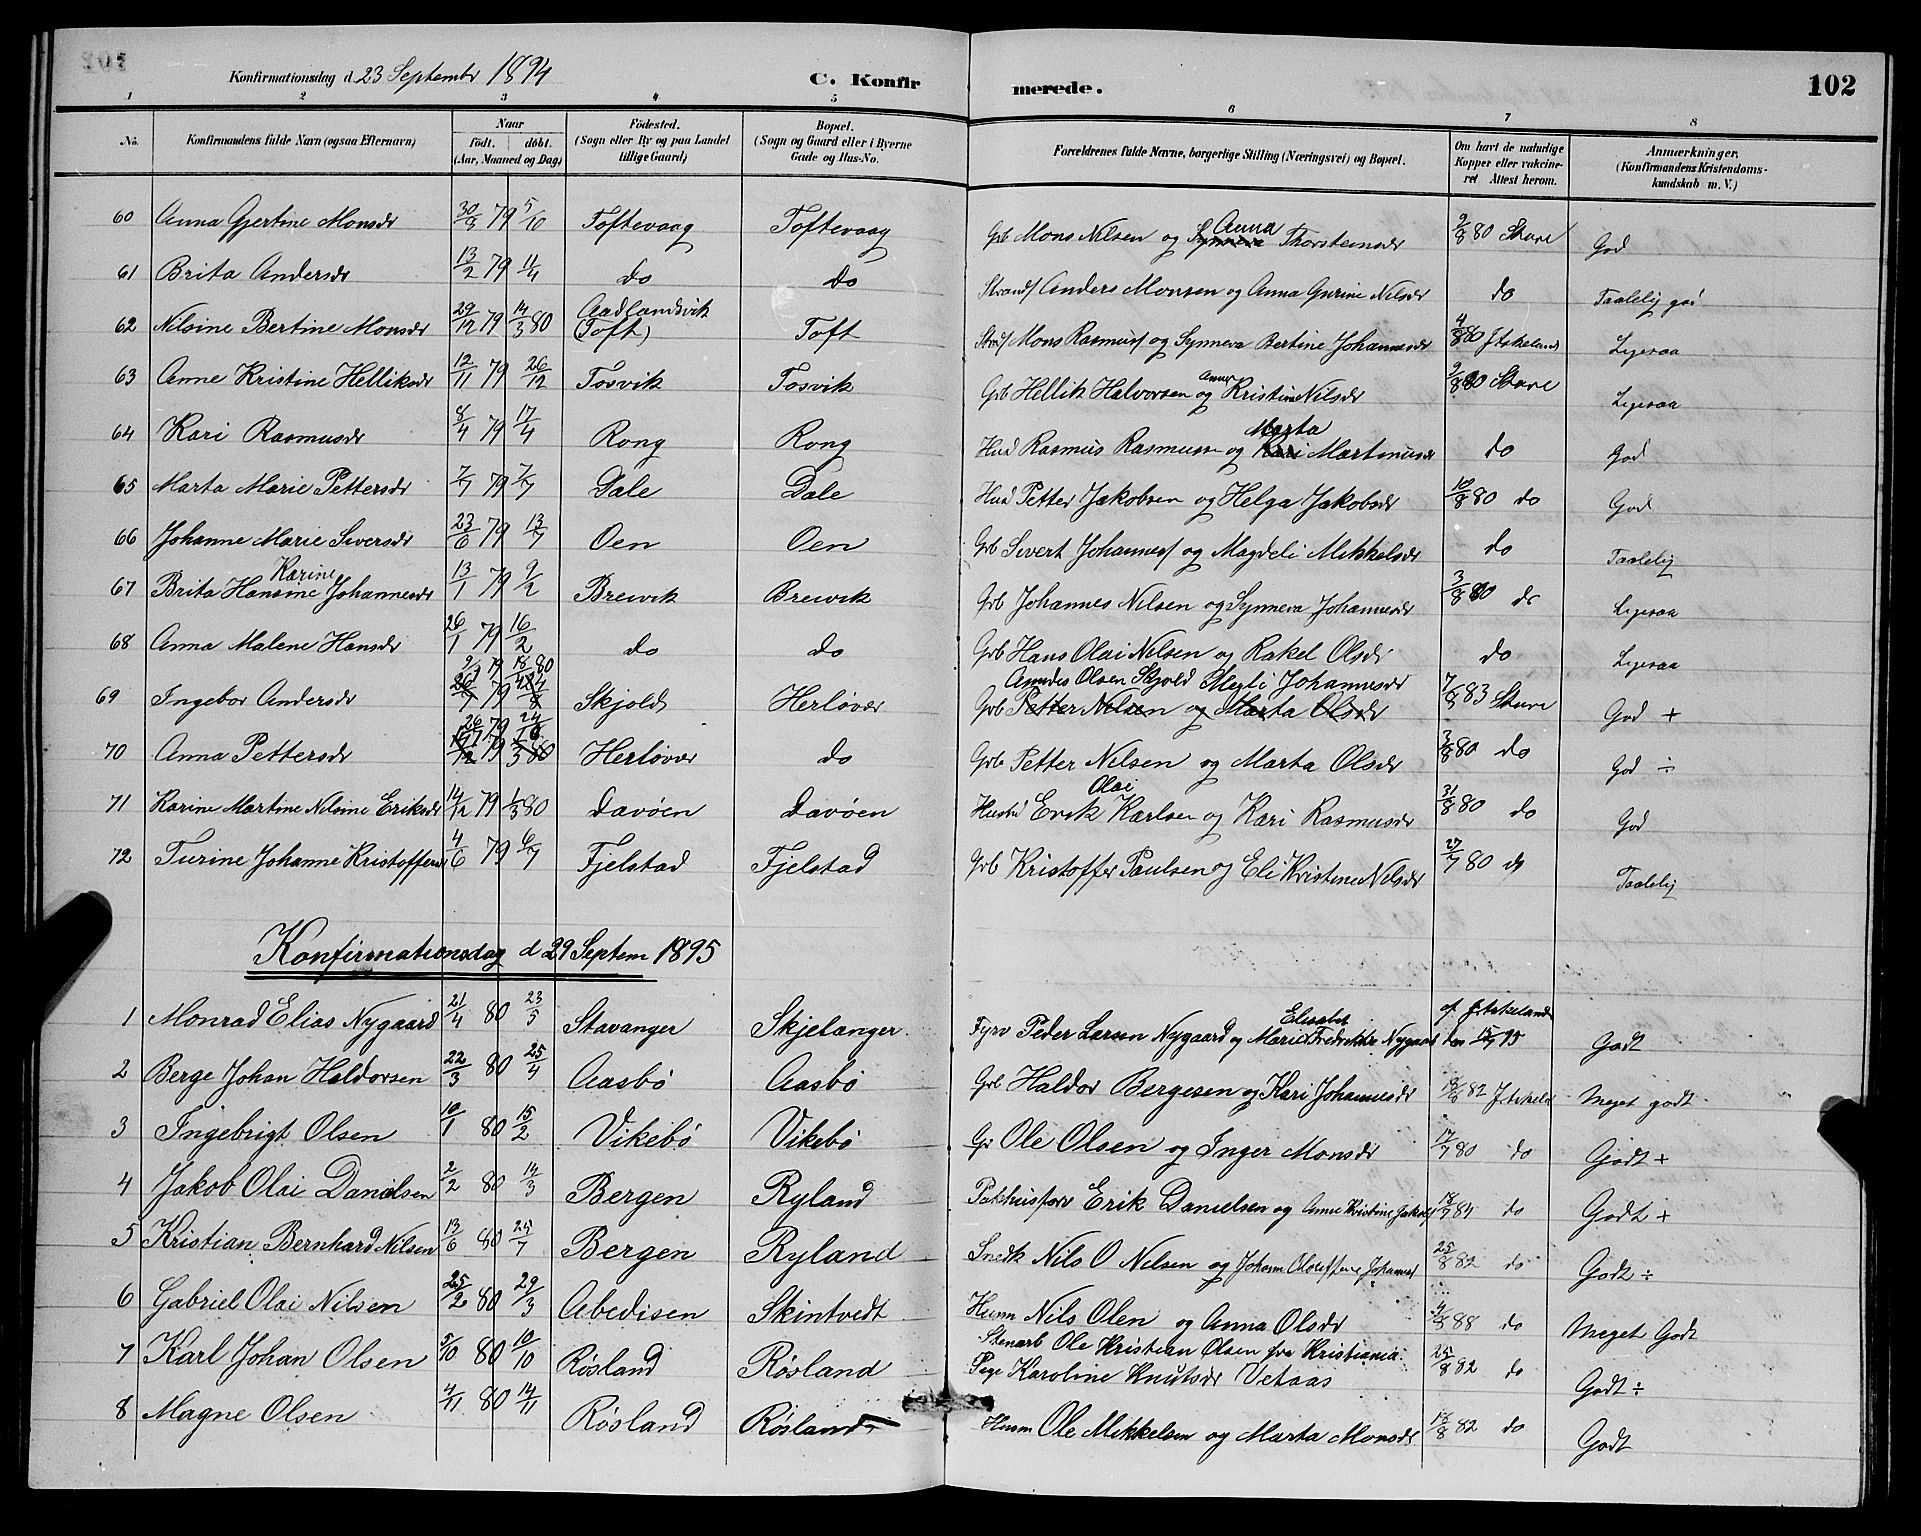 Konfirmationsdag d. 23 Septembr 1894 C. Konfirmerede. 102
1 2 3 4 5 6 7 8
No. Konfirmandens fulde Navn (ogsaa Efternavn) Naar født. døbt. (Aar, Maaned og Dag) Fødested. (Sogn eller By og paa Landet tillige Gaard) Bopæl. (Sogn og Gaard eller i Byerne Gade og Hus-No. Forældrenes fulde Navne, borgerlige Stilling (Næringsvei) og Bopæl. Om havt de naturlige Kopper eller vakcineret Attest herom. Anmærkninger. (Konfirmandens Kristendomskundskab m. V.)
60 Anna Gjertine Monsdr 30/9 79 5/10 Toftevaag Toftevaag Grb Mons Nilsen og Synneva Anna Thorsteinsdr 2/8 80 Stare God
61 Brita Andersdr 13/2 79 11/4 do do Strands Anders Monsen og Anna Gurine Nilsdr do Taalelig god
62 Nilsine Bertine Monsdr 29/12 79 14/3 80 Aadlandsvik (Toft) Toft Strds Mons Rasmuss og Synneva Bertine Johannesdr 4/8 80 J Askeland Ligesaa
63 Anne Kristine Helliksdr 12/11 79 26/12 Tosvik Tosvik Grb Hellik Halvorsen og Anna Kristine Nilsdr 2/8 80 Stare Ligesaa
64 Kari Rasmusdr 8/4 79 17/4 Rong Rong Husd Rasmus Rasmussen og Kari Marta Martinusdr do God
65 Marta Marie Pettersdr 7/7 79 7/7 Dale Dale Husd Petter Jakobsen og Helga Jakobsdr 10/8 80 do God
66 Johanne Marie Siversdr 23/6 79 13/7 Oen Oen Grb Sivert Johanness og Magdeli Mikkelsdr do Taalelig
67 Brita Hansine Karine Johannesdr 13/1 79 9/2 Breivik Breivik Grb Johannes Nilsen og Synneva Johannesdr 3/8 80 do Ligesaa
68 Anna Malene Hansdr 26/1 79 16/2 do do Grb Hans Olai Nilsen og Rakel Olsdr do Ligesaa
Anndes Olsen Skjold Megli Johannesdr
69 Ingebor Andersdr Skjold Herløvær Grb Petter Nilsen og Marta Olsdr 7/9 83 Stare God +
70 Anna Pettersdr Herløvær do Grb Petter Nilsen og Marta Olsdr 3/8 80 do God ÷
71 Karine Martine Nilsine Eriksdr 14/12 79 1/3 80 Davøen Davøen Husmd Erik Olai Karlsen og Kari Rasmusdr 31/8 80 do God
72 Turine Johanne Kristoffersdr 4/6 79 6/7 Fjelstad Fjelstad Grb Kristoffer Paulsen og Eli Kristine Nilsdr 27/7 80 do Taalelig
Konfirmationsdag d 29 Septem 1895
1 Monrad Elias Nygaard 21/4 80 23/5 Stavanger Skjelanger Fyrv Peder Larsen Nygaard og Marie Elisabet Fredrikke Nygaard af J Askeland den 15/7 95 Godt
2 Berge Johan Haldorsen 22/3 80 25/4 Aasbø Aasbø Grb Haldor Bergesen og Kari Johannesdr 18/8 82 J Askela Meget godt
3 Ingebrigt Olsen 10/1 80 15/2 Vikebø Vikebø Gr Ole Olsen og Inger Monsdr 17/7 80 do Godt +
4 Jakob Olai Danielsen 2/2 80 14/3 Bergen Ryland Pakhusforv Erik Danielsen og Anne Kristine Jakobs 18/7 84 do Godt +
5 Kristian Bernhard Nilsen 13/6 80 25/7 Bergen Ryland Snedk Nils O Nilsen og Johanne 25/8 82 do Godt ÷
6 Gabriel Olai Nilsen 25/2 80 29/3 Abedisen Skintvedt Husm Nils Olen og Anna Olsdr 4/8 88 do Meget Godt
7 Karl Johan Olsen 5/10 80 10/10 Røsland Røsland Stenarb Ole Kristian Olsen fra Kristiania. Pige Karoline Knutsdr Vetaas 25/8 82 do Godt ÷
8 Magne Olsen 4/11 80 14/11 Røsland Røsland Husm Ole Mikkelsen og Marta Monsdr 18/8 82 do Godt